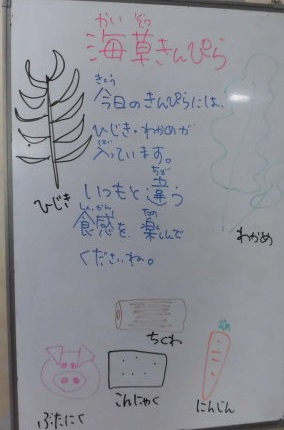 かいそう
海草きんぴら
きょう
今日のきんぴらには、
ひじき・わかめが
はい
入っています。
ちが
いつもと違う
しょっかん たの
食感を、楽しんで
くださいね。
ひじき
わかめ
ちくわ
ぶたにく
こんにゃく
にんじん